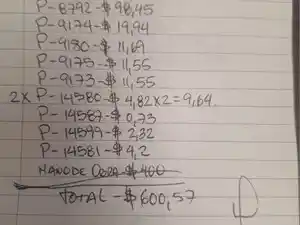 P-8792-$98,45
P-9174-$19,94
P-9180-$11,69
P-9175-$11,55
P-9173-$11,55
2x P-14580-$4,82x2=9,64
P-14587-$0,73
P-14599-$2,32
P-14581-$4,2
MANO DE OBRA-$400
TOTAL-$600,57